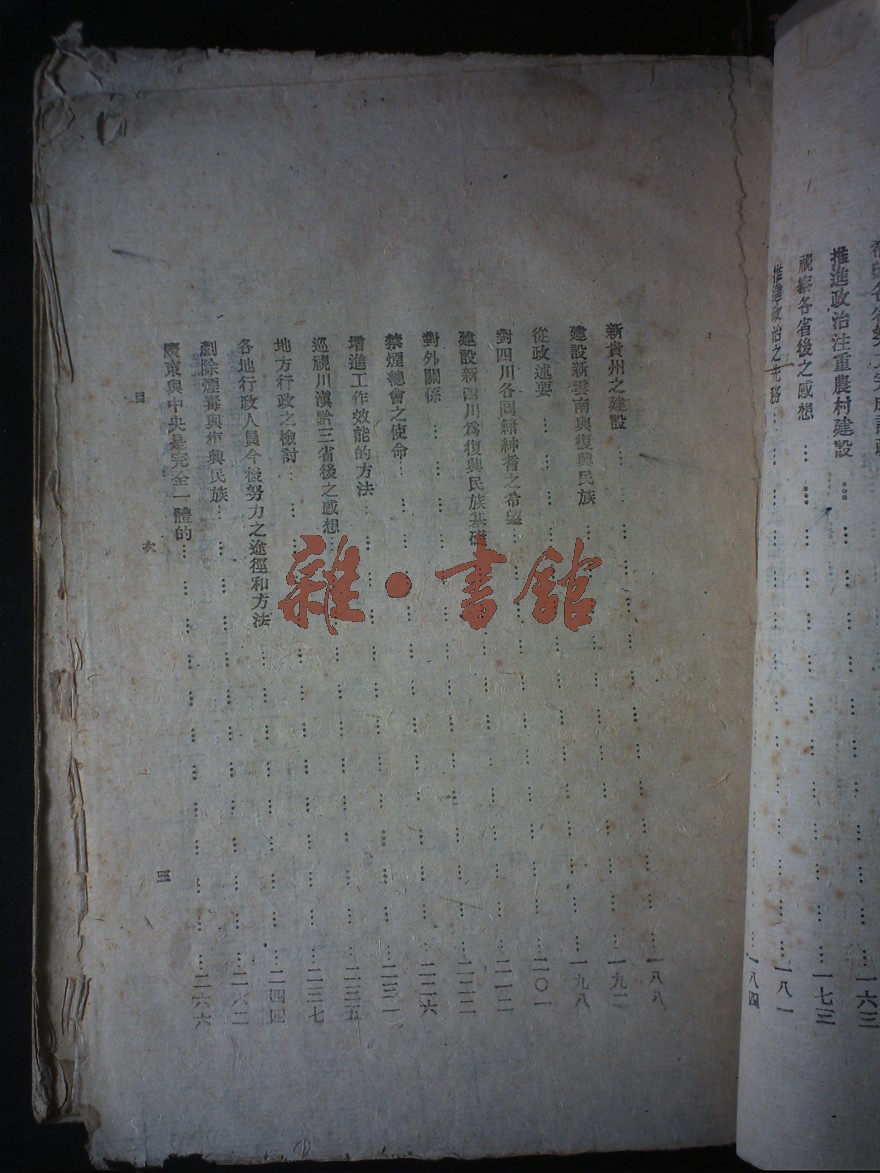 一六三
推進政治注重農村建設 … … … … … … … 一七三
視察各省後之感想 … … … … … … … 一八一
推進政治之先務 … … … … … … … 一八四
新貴州之建設 … … … … … … … 一八八
建設新雲南與復興民族 … … … … … … … 一九一
從政述要 … … … … … … … 一九八
對四川各 紳耆之希望 … … … … … … … 二〇一
建設新四川爲復興民族基礎 … … … … … … … 二一二
對外關係 … … … … … … … 二二二
禁煙總會之使命 … … … … … … … 二二六
增進工作效能的方法 … … … … … … … 二三一
巡視川滇黔三省後之感想 … … … … … … … 二三五
地方行政之檢討 … … … … … … … 二三七
各地行政人員今後努力之途徑和方法 … … … … … … 二四四
剷除煙毒與復興民族 … … … … … … … 二六二
廣東與中央是完全一體的 … … … … … … … 二六六
目 次 三
雜·書館